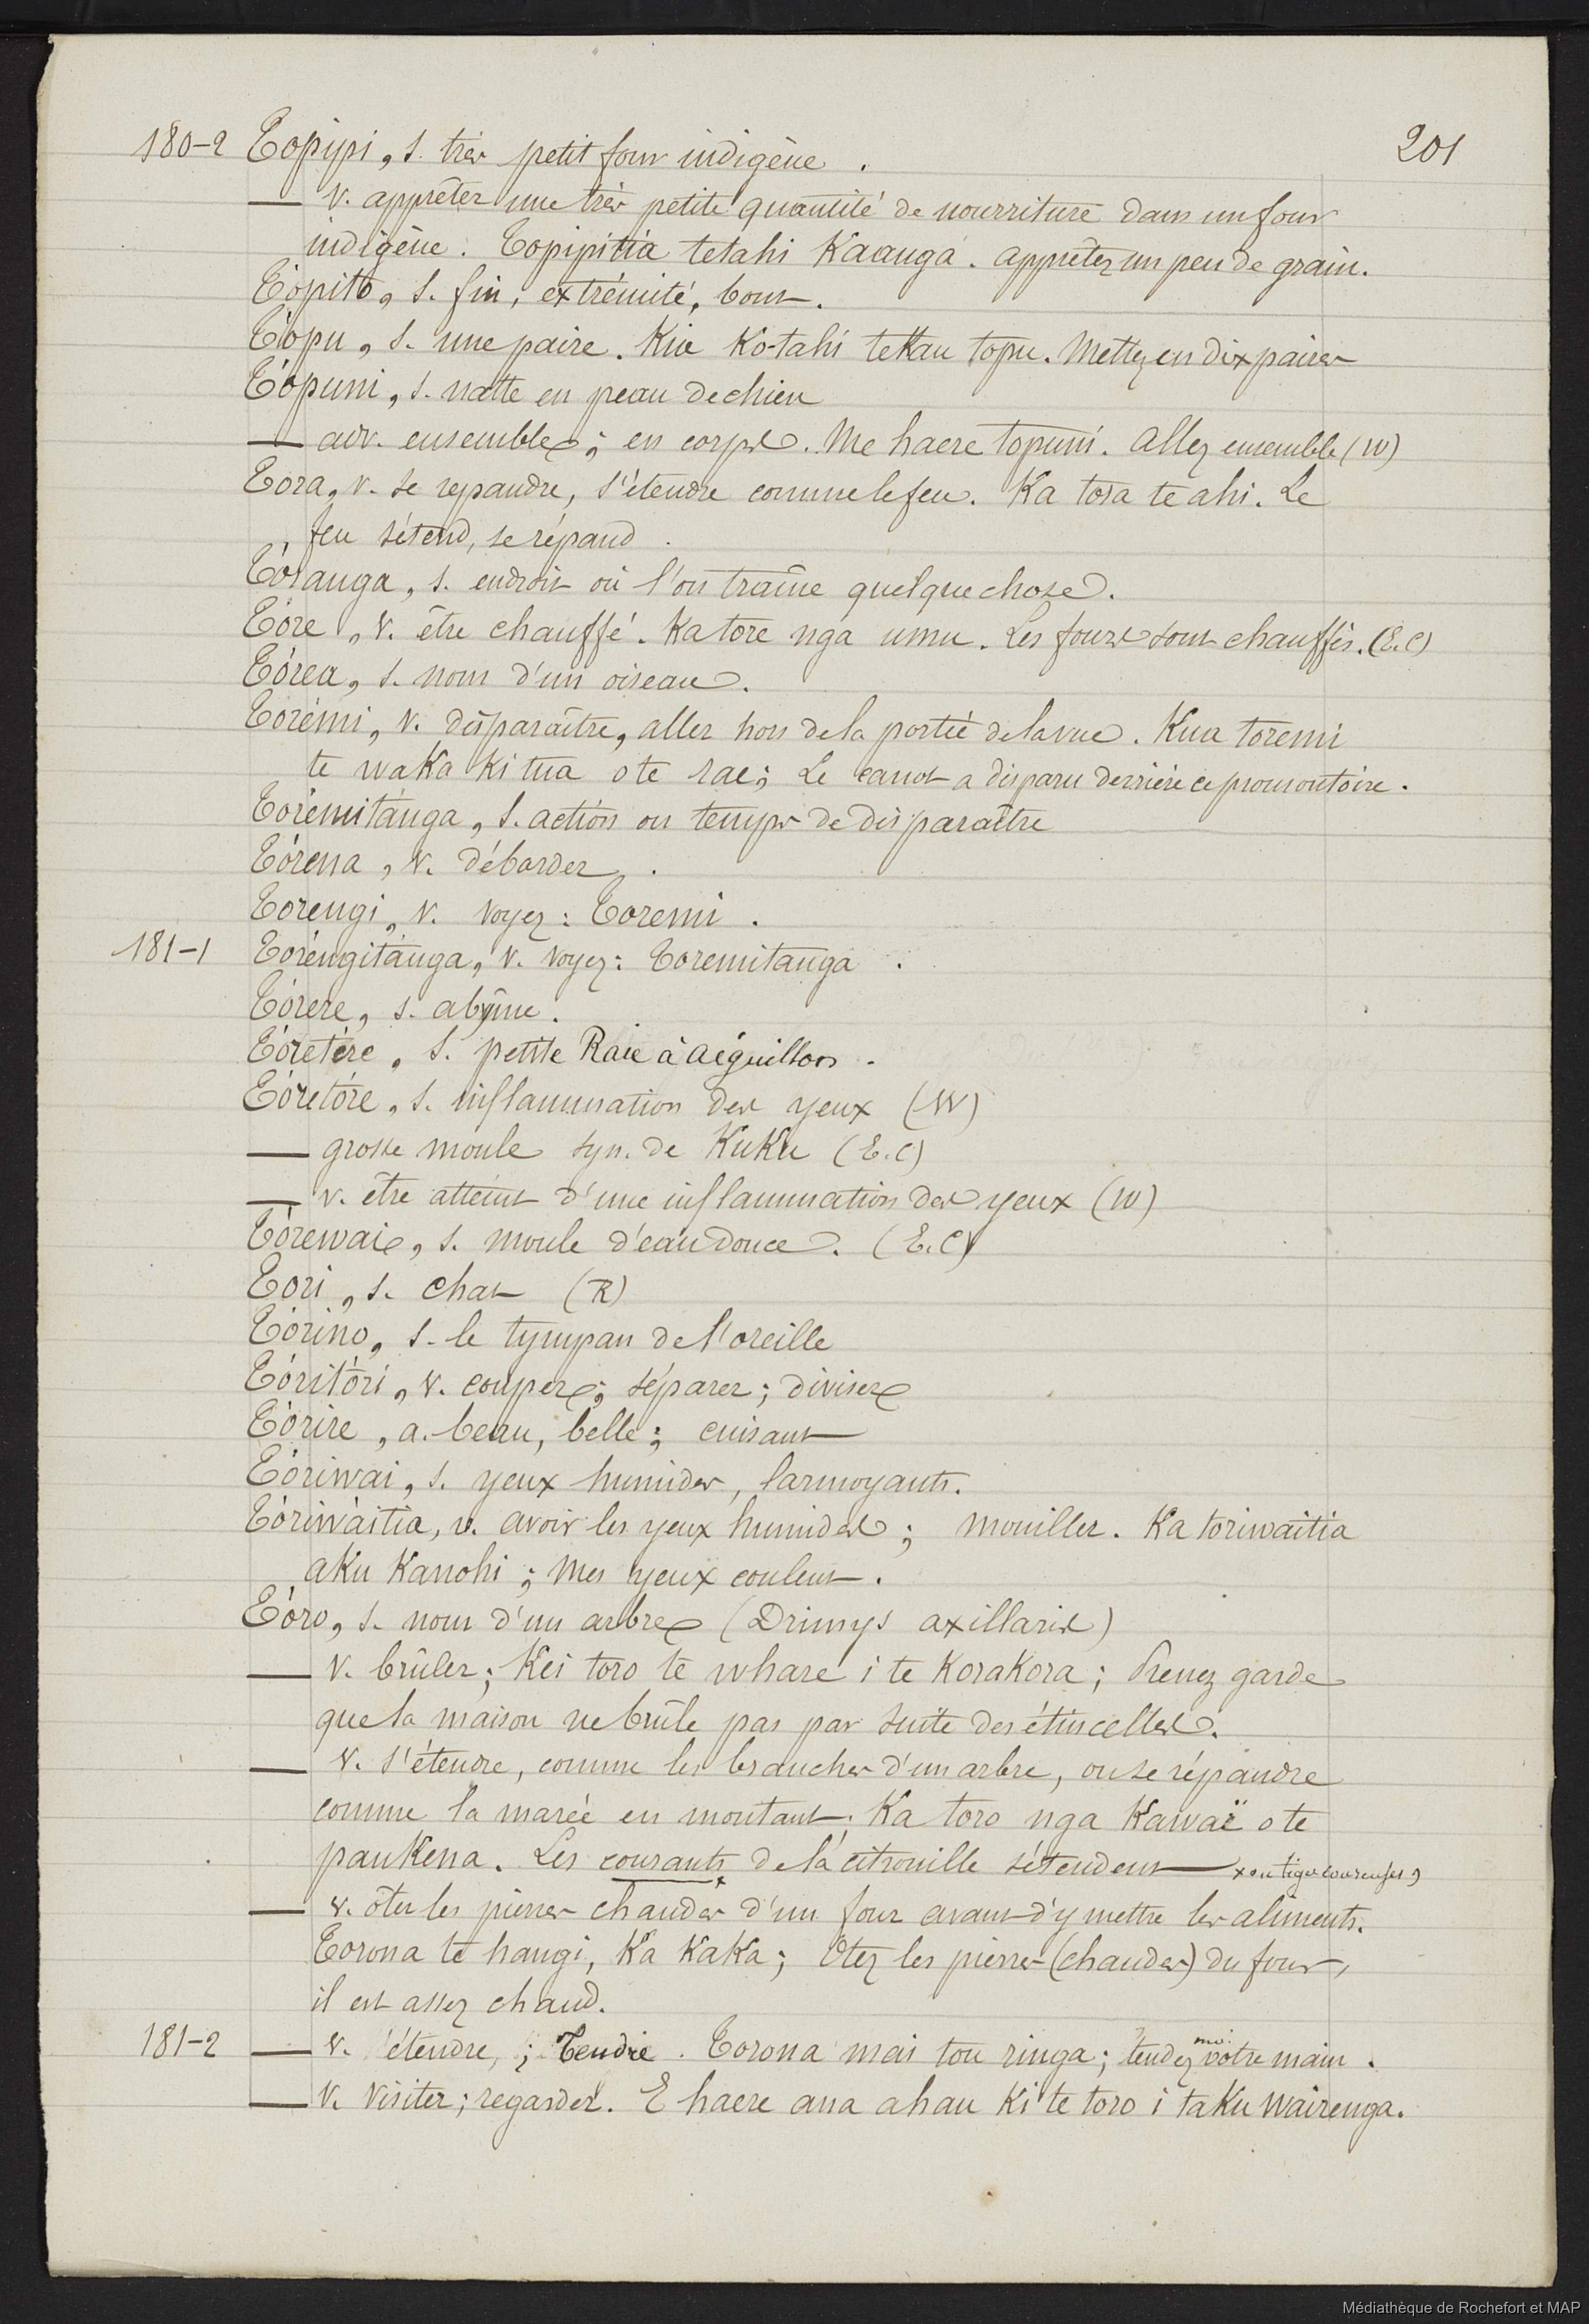 201
180-2 Topipi, s. très petit four indigène.
— v. apprêter une très petite quantité de nourriture dans un four
indigène. Topipitia tetahi Kaanga. apprêtez un peu de grain.
Tópito, s. fin, extrémité, bout.
Tópu, s. une paire. Kia Ko-tahi tekau topu. Mettez en dix paires
Tópuni, s. natte en peau de chien
— adv. ensemble; en corps. Me haere topuni. Allez ensemble (W)
Tora, v. se repandre, s'étendre comme le feu. Ka tora te ahi. Le
feu s'étend, se répand.
Tóranga, s. endroit où l'on traîne quelque chose.
Tóre, v. être chauffé. Ka tore nga umu. Les fours sont chauffés. (E.C)
Tórea, s. nom d'un oiseau.
Torémi, v. disparaître, aller hors de la portée de la vue. Kua toremi
te waka ki tua o te rae; Le canot a disparu derrière ce promontoire.
Torémitánga, s. action ou temps de disparaître
Tórena, v. déborder.
Torengi, v. voyez: Toremi.
181-1 Toréngitánga, v. voyez: Toremitanga.
Tórere, s. abyme.
Tóretére, s. petite Raie à aiguillon.
Tóretóre, s. inflammation des yeux (W)
— grosse moule syn. de Kuku (E.C)
— v. être atteint d'une inflammation des yeux (W)
Tórewai, s. moule d'eau douce. (E.C)
Tori, s. chat (R)
Tórino, s. le tympan de l'oreille
Tóritóri, v. couper; séparer; diviser
Tórire, a. beau, belle; cuisant
Tóriwai, s. yeux humides, larmoyants.
Tóriwáitia, v. avoir les yeux humides; mouiller. Ka toriwaitia
aku Kanohi; Mes yeux coulent.
Tóro, s. nom d'un arbre (Drimys axillaris)
— v. brûler; Kei toro te whare i te Korakora; Prenez garde
que la maison ne brûle pas par suite des étincelles.
— v. s'étendre, comme les branches d'un arbre, ou se répandre
comme la marée en montant. Ka toro nga Kawaï o te
paukena. Les courants de la citrouille s'étendent x ou tiges coureuses,
— v. ôter les pierres chaudes d'un four avant d'y mettre les aliments.
Torona te hangi, Ka Kaka; Otez les pierres (chaudes) du four,
il est assez chaud.
181-2 — v. étendre, ; Tendre. Torona mai tou ringa; tendez moi votre main.
— v. visiter; regarder. E haere ana ahau Ki te toro i taku Wairenga.
Médiathèque de Rochefort et MAP